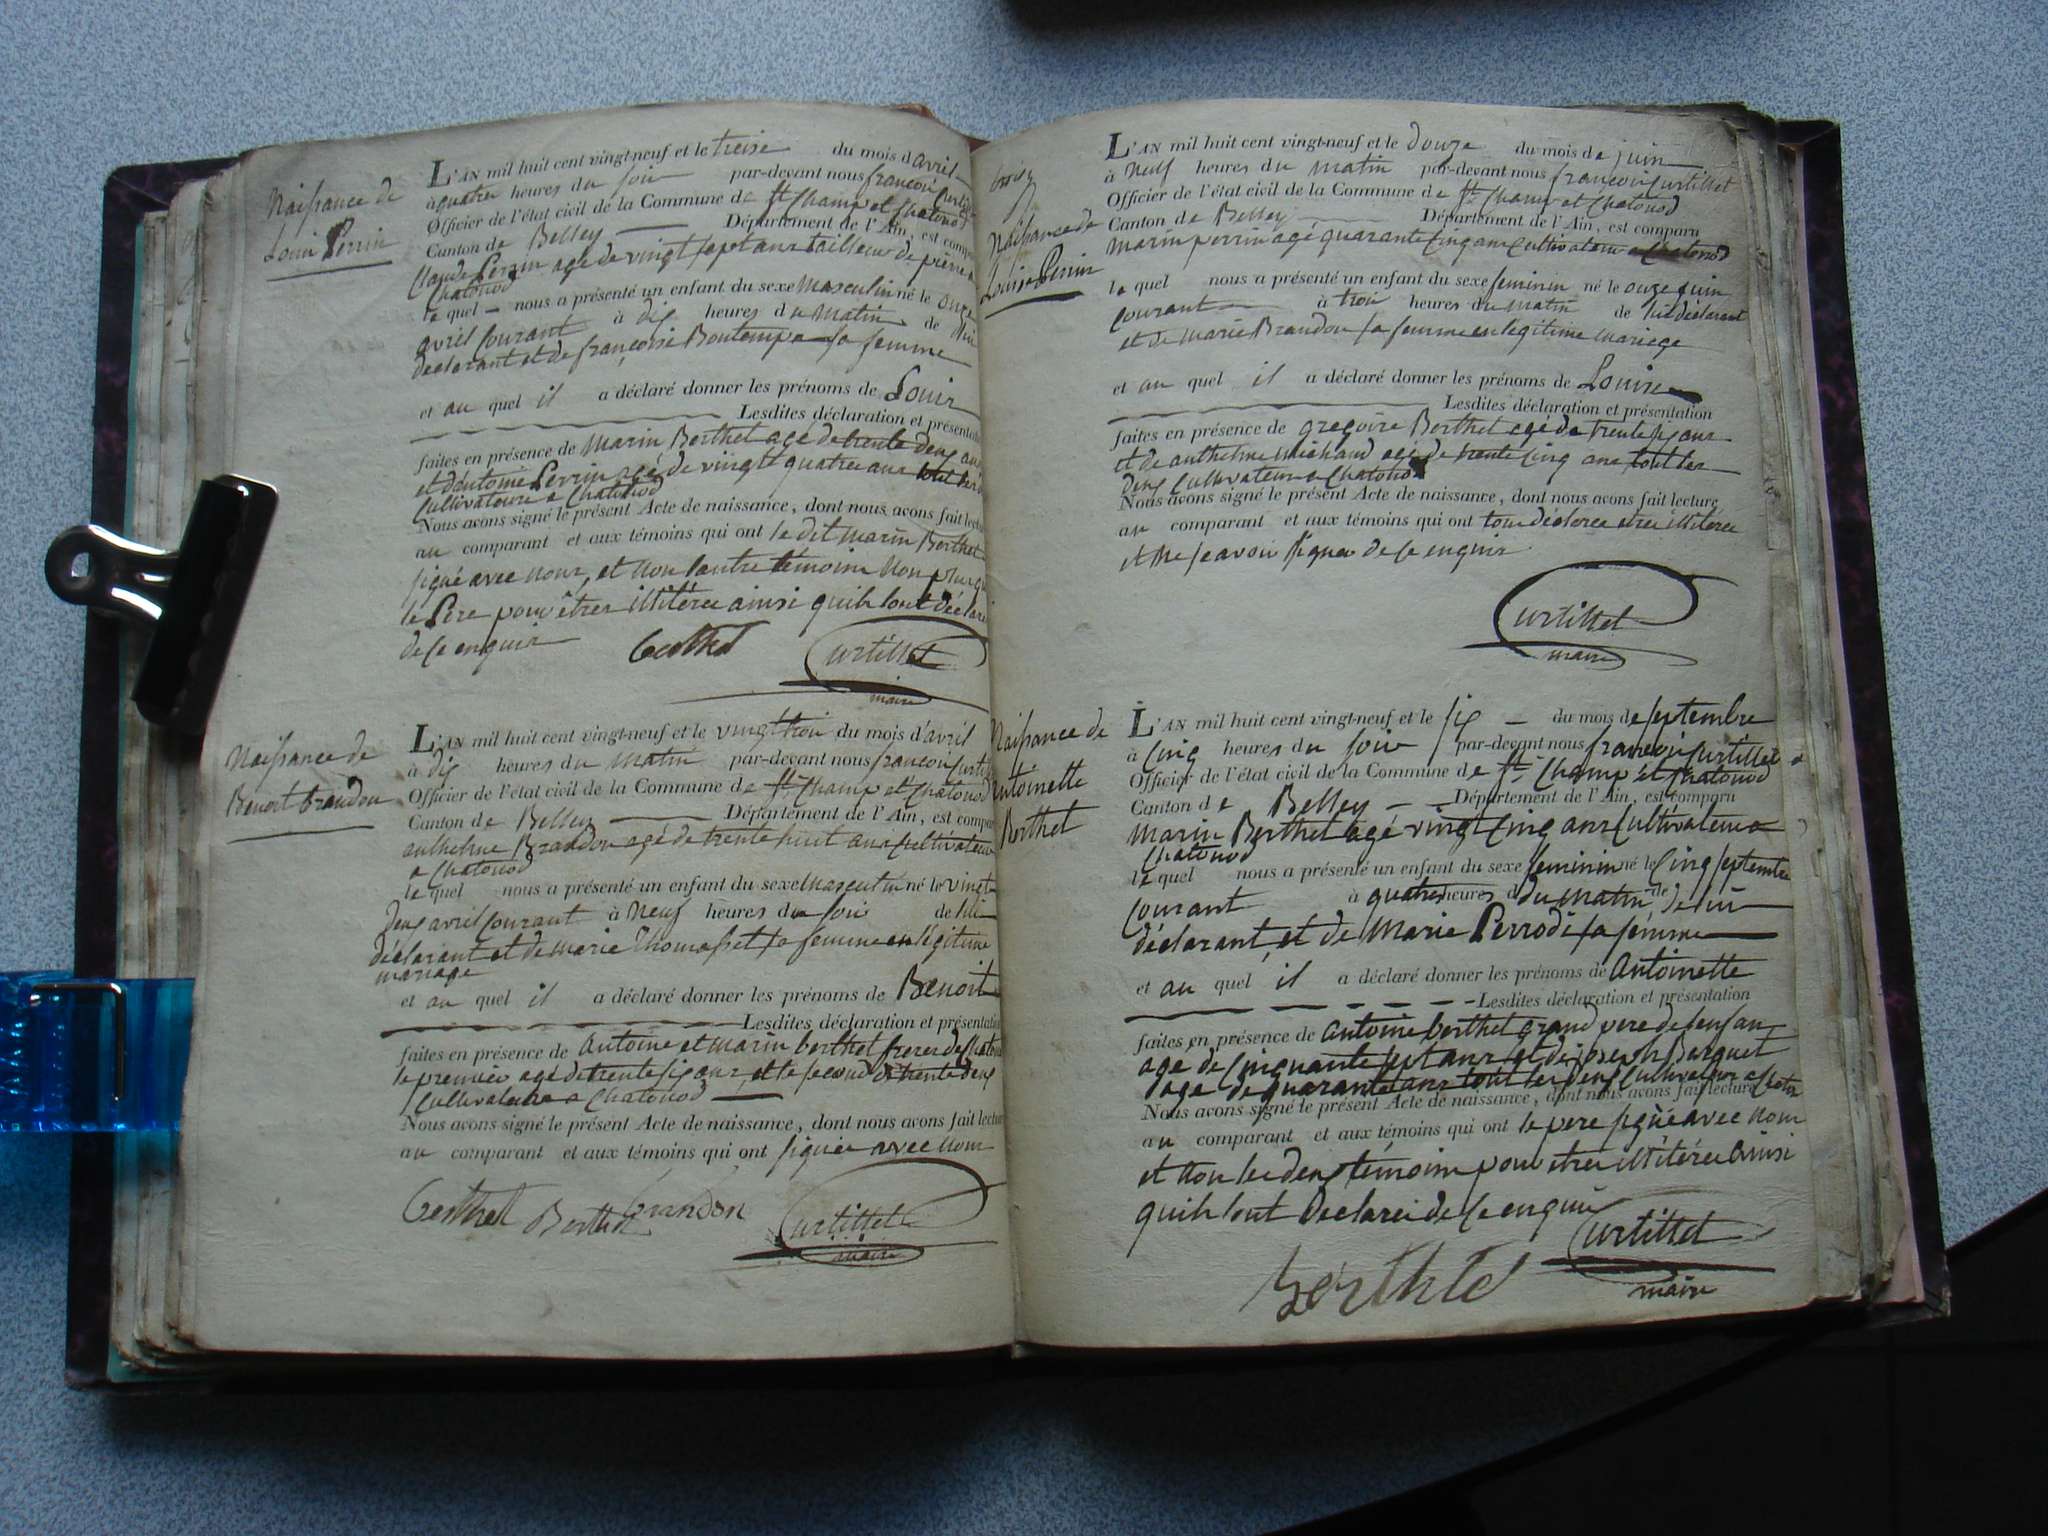 Naissance de
Louis Perrin
L'AN mil huit cent vingt-neuf et le treise du mois d'avril
à quatre heures du soir par-devant nous françois Curtil
Officier de l'état civil de la Commune de St Champ et Chatonod
Canton de Belley Département de l'Ain, est compa
Claude Perrin agé de vingt sept ans tailleur de pierre a
Chatonod
le quel nous a présenté un enfant du sexe masculin né le onze
avril courant à dix heures du matin de lui
déclarant et de françoise Bontemps sa femme
et au quel il a déclaré donner les prénoms de Louis
Lesdites déclaration et présentati
faites en présence de Marin Berthet agé de trente deux ans
et d'antoine Perrin agé de vingt quatre ans tout les d
Cultivateurs a Chatonod
Nous avons signé le présent Acte de naissance, dont nous avons fait lectu
au comparant et aux témoins qui ont le dit marin Berthet
signé avec nous, et non l'autre témoins non plus q
le Père pour être illitérés ainsi quils l'ont déclaré
de ce enquis
Berthet Curtillet
maire
Naissance de
Benoit Brandon
L'AN mil huit cent vingt-neuf et le vingt trois du mois d'avril
à dix heures du matin par-devant nous francois Curti
Officier de l'état civil de la Commune de St Champ et Chatonod
Canton de Belley Département de l'Ain, est compa
anthelme Brandon agé de trente huit ans Cultivateur
a Chatonod
le quel nous a présenté un enfant du sexe masculin né le vingt
deux avril courant à neuf heures du soir de lui
déclarant et de marie Thomasset sa femme en légitime
mariage
et au quel il a déclaré donner les prénoms de Benoit
Lesdites déclaration et présentati
faites en présence de antoine et marin berthet freres de Chatono
le premier agé de trente six ans, et le second de trente deux
Cultivateurs a Chatonod
Nous avons signé le présent Acte de naissance, dont nous avons fait lectur
au comparant et aux témoins qui ont signés avec nous
Berthet Berthet Brandon Curtillet
maire
Naissance de
Louise Perrin
L'AN mil huit cent vingt-neuf et le douze du mois de juin
à neuf heures du matin par-devant nous françois Curtillet
Officier de l'état civil de la Commune de St Champ et Chatonod
Canton de Belley Département de l'Ain, est comparu
marin perrin agé quarante cinq ans Cultivateur a Chatonod
le quel nous a présenté un enfant du sexe feminin né le onze juin
courant à trois heures du matin de lui déclarant
et de marie Brandon sa femme en legitime mariage
et au quel il a déclaré donner les prénoms de Louise
Lesdites déclaration et présentation
faites en présence de gregoire Berthet agé de trente six ans
et de anthelme michaud agé de trente cinq ans tout les
deux Cultivateurs a Chatonod
Nous avons signé le présent Acte de naissance, dont nous avons fait lecture
au comparant et aux témoins qui ont tous déclarés etres illitérés
et ne scavoir signer de ce enquis
Curtillet
maire
Naissance de
Antoinette
Berthet
L'AN mil huit cent vingt-neuf et le six du mois de septembre
à cinq heures du soir par-devant nous francois Curtillet
Officier de l'état civil de la Commune de St Champ et Chatonod
Canton de Belley Département de l'Ain, est comparu
Marin Berthet agé vingt cinq ans Cultivateur a
Chatonod
le quel nous a présenté un enfant du sexe feminin né le cinq septembre
courant à quatre heures du matin de lui
déclarant, et de Marie Perrodi sa femme
et au quel il a déclaré donner les prénoms de Antoinette
Lesdites déclaration et présentation
faites en présence de antoine berthet grand pere de lenfan
age de cinquante sept ans et de joseph Barquet
age de quarante ans tout les deux cultivateur a Chaton
Nous avons signé le présent Acte de naissance, dont nous avons fait lecture
au comparant et aux témoins qui ont le pere signé avec nous
et non les deux témoins pour etres illitérés ainsi
quils lont declarés de ce enquis
Curtillet
Berthet maire